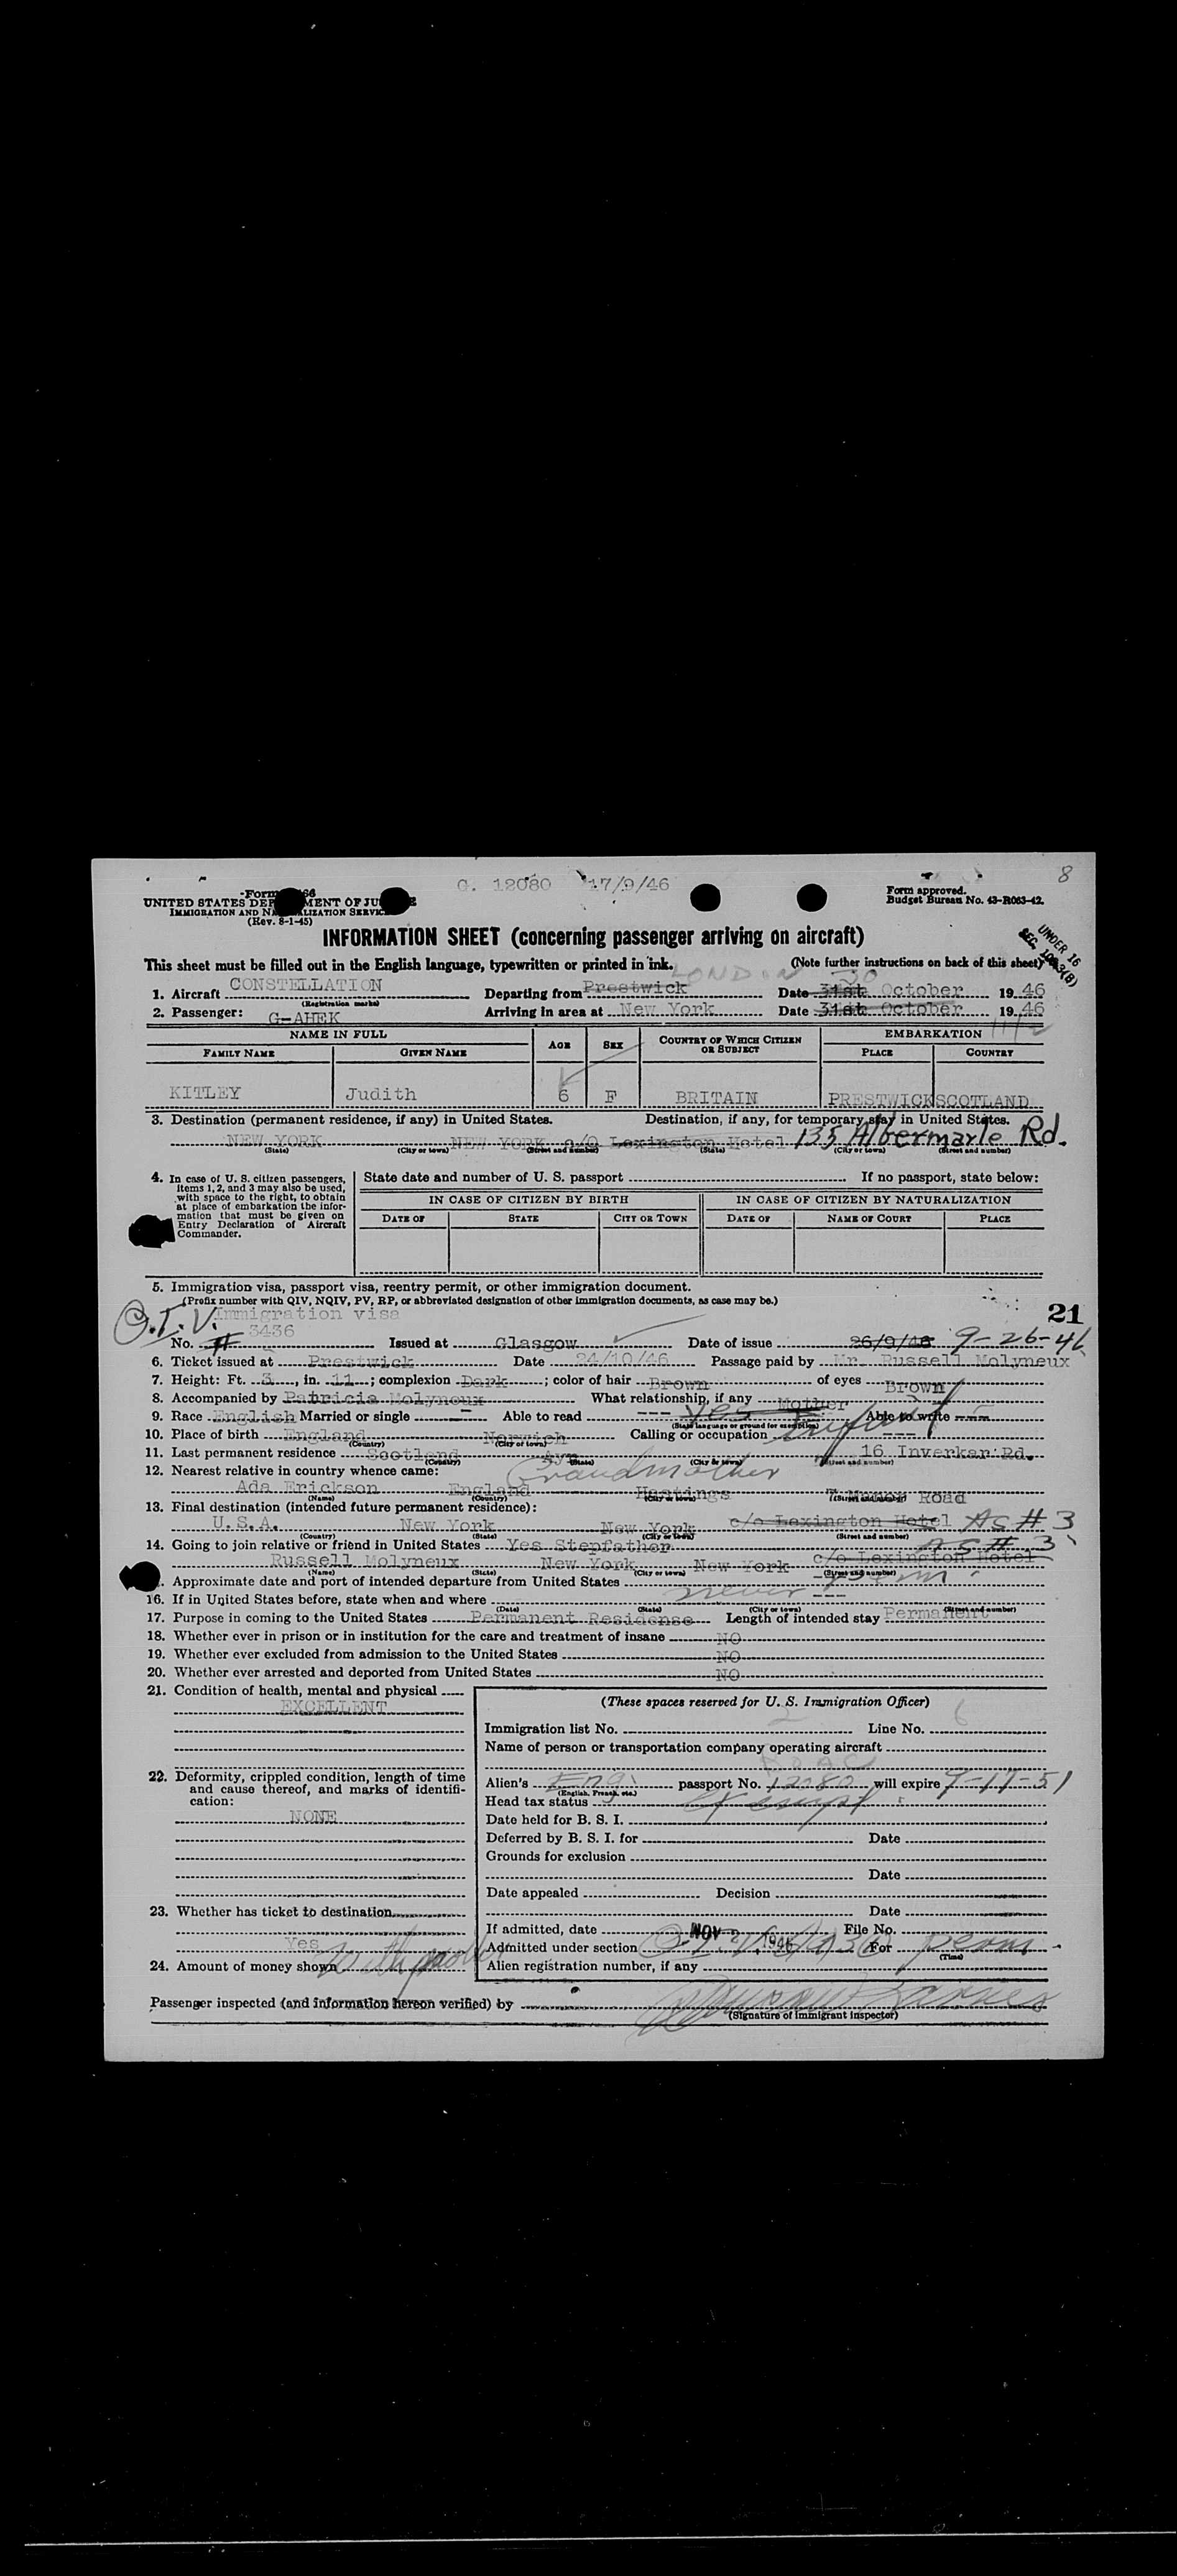 C. 12080 17/9/46
8
Form 66
UNITED STATES DEP MENT OF JU
IMMIGRATION AND NA LIZATION SERVIC
(Rev. 8-1-45)
Form approved.
Budget Bureau No. 43-R063-42.
INFORMATION SHEET (concerning passenger arriving on aircraft)
UNDER 16
This sheet must be filled out in the English language, typewritten or printed in ink. (Note further instructions on back of this sheet)
LONDON 30
1. Aircraft CONSTELLATION Departing from Prestwick Date 31st October 19 46
(Registration marks)
2. Passenger: G-AHEK Arriving in area at New York Date 31st October 19 46
11/2
NAME IN FULL AGE SEX COUNTRY OF WHICH CITIZEN OR SUBJECT EMBARKATION
FAMILY NAME GIVEN NAME PLACE COUNTRY
KITLEY Judith 6 F BRITAIN PRESTWICK SCOTLAND
3. Destination (permanent residence, if any) in United States. Destination, if any, for temporary stay in United States.
NEW YORK NEW YORK c/o Lexington Hotel 135 Albermarle Rd.
(State) (City or town) (Street and number) (State) (City or town) (Street and number)
4. In case of U. S. citizen passengers, items 1, 2, and 3 may also be used, with space to the right, to obtain at place of embarkation the information that must be given on Entry Declaration of Aircraft Commander.
State date and number of U. S. passport If no passport, state below:
IN CASE OF CITIZEN BY BIRTH IN CASE OF CITIZEN BY NATURALIZATION
DATE OF STATE CITY OR TOWN DATE OF NAME OF COURT PLACE
5. Immigration visa, passport visa, reentry permit, or other immigration document.
(Prefix number with QIV, NQIV, PV, RP, or abbreviated designation of other immigration documents, as case may be.)
21
Immigration visa
No. # 3436 Issued at Glasgow Date of issue 26/9/46 9-26-46
6. Ticket issued at Prestwick Date 24/10/46 Passage paid by Mr. Russell Molyneux
7. Height: Ft. 3, in. 11; complexion Dark; color of hair Brown of eyes Brown
8. Accompanied by Patricia Molyneux What relationship, if any Mother
9. Race English Married or single - Able to read --- yes Able to write ---
(State language or ground for exemption)
10. Place of birth England Norwich Calling or occupation ---
(Country) (City or town)
11. Last permanent residence Scotland Ayr 16 Inverkar Rd.
(Country) (State) (City & town) (Street and number)
12. Nearest relative in country whence came: Grandmother
Ada Erickson England Hastings 7 Manor Road
(Name) (Country) (City or town) (Street and number)
13. Final destination (intended future permanent residence):
U.S.A. New York New York c/o Lexington Hotel As # 3
(Country) (State) (City or town) (Street and number)
14. Going to join relative or friend in United States Yes Stepfather As # 3
Russell Molyneux New York New York c/o Lexington Hotel
(Name) (State) (City or town) (Street and number)
Approximate date and port of intended departure from United States --- perm
16. If in United States before, state when and where never ---
(Date) (State) (City or town) (Street and number)
17. Purpose in coming to the United States Permanent Residense Length of intended stay Permanent
18. Whether ever in prison or in institution for the care and treatment of insane NO
19. Whether ever excluded from admission to the United States NO
20. Whether ever arrested and deported from United States NO
21. Condition of health, mental and physical
EXCELLENT
22. Deformity, crippled condition, length of time and cause thereof, and marks of identification:
NONE
23. Whether has ticket to destination
Yes
24. Amount of money shown with mother
(These spaces reserved for U. S. Immigration Officer)
Immigration list No. 2 Line No. 6
Name of person or transportation company operating aircraft
BOAC
Alien's Eng. passport No. 12080 will expire 9-17-51
(English, French, etc.)
Head tax status exempt
Date held for B. S. I.
Deferred by B. S. I. for Date
Grounds for exclusion
Date
Date appealed Decision
Date
If admitted, date NOV 2 1946 File No.
Admitted under section For perm
(Time)
Alien registration number, if any
Passenger inspected (and information hereon verified) by
(Signature of immigrant inspector)